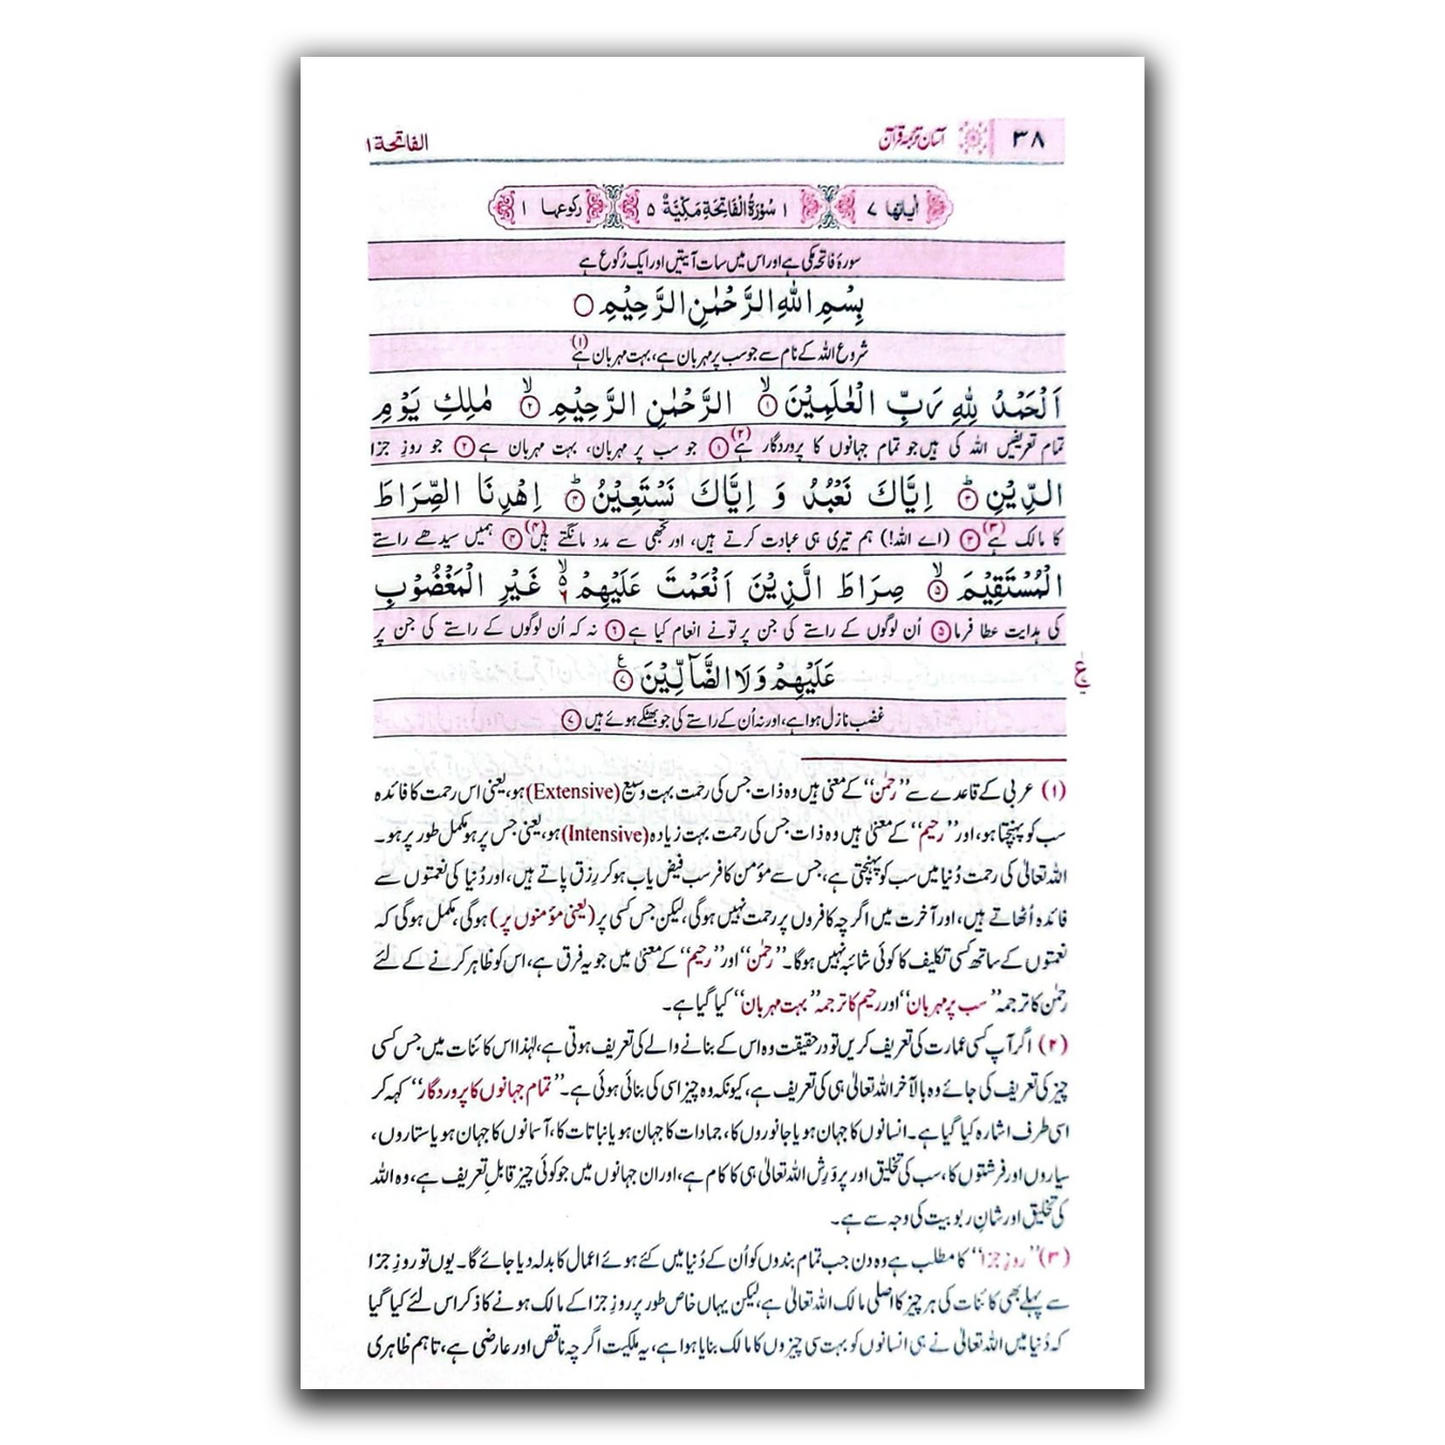 ۳۸ آسان ترجمۂ قرآن الفاتحة ۱
اٰیاتہا ۷ ۱ سُوۡرَۃُ الۡفَاتِحَۃِ مَکِّیَّۃٌ ۵ رکوعہا ۱
سورۂ فاتحہ مکی ہے اور اس میں سات آیتیں اور ایک رُکوع ہے
بِسْمِ اللّٰهِ الرَّحْمٰنِ الرَّحِیْمِ ○
شروع اللہ کے نام سے جو سب پر مہربان ہے، بہت مہربان ہے (۱)
اَلْحَمْدُ لِلّٰهِ رَبِّ الْعٰلَمِیْنَ ۙ﴿۱﴾ الرَّحْمٰنِ الرَّحِیْمِ ۙ﴿۲﴾ مٰلِكِ یَوْمِ
تمام تعریفیں اللہ کی ہیں جو تمام جہانوں کا پروردگار ہے (۲) ﴿۱﴾ جو سب پر مہربان، بہت مہربان ہے ﴿۲﴾ جو روزِ جزا
الدِّیْنِ ؕ﴿۳﴾ اِیَّاكَ نَعْبُدُ وَ اِیَّاكَ نَسْتَعِیْنُ ؕ﴿۴﴾ اِهْدِنَا الصِّرَاطَ
کا مالک ہے (۳) ﴿۳﴾ (اے اللہ!) ہم تیری ہی عبادت کرتے ہیں، اور تجھی سے مدد مانگتے ہیں (۴) ﴿۴﴾ ہمیں سیدھے راستے
الْمُسْتَقِیْمَ ۙ﴿۵﴾ صِرَاطَ الَّذِیْنَ اَنْعَمْتَ عَلَیْهِمْ ۙ۬ۦ۶ غَیْرِ الْمَغْضُوْبِ
کی ہدایت عطا فرما ﴿۵﴾ اُن لوگوں کے راستے کی جن پر تونے انعام کیا ہے ﴿۶﴾ نہ کہ اُن لوگوں کے راستے کی جن پر
عَلَیْهِمْ وَلَا الضَّآلِّیْنَ ﴿۷﴾ ع
غضب نازل ہوا ہے، اور نہ اُن کے راستے کی جو بھٹکے ہوئے ہیں ﴿۷﴾
(۱) عربی کے قاعدے سے ”رحمٰن“ کے معنیٰ ہیں وہ ذات جس کی رحمت بہت وسیع (Extensive) ہو، یعنی اس رحمت کا فائدہ
سب کو پہنچتا ہو، اور ”رحیم“ کے معنیٰ ہیں وہ ذات جس کی رحمت بہت زیادہ (Intensive) ہو، یعنی جس پر ہو مکمل طور پر ہو۔
اللہ تعالیٰ کی رحمت دُنیا میں سب کو پہنچتی ہے، جس سے مؤمن کافر سب فیض یاب ہو کر رِزق پاتے ہیں، اور دُنیا کی نعمتوں سے
فائدہ اُٹھاتے ہیں، اور آخرت میں اگرچہ کافروں پر رحمت نہیں ہوگی، لیکن جس کسی پر (یعنی مؤمنوں پر) ہوگی، مکمل ہوگی کہ
نعمتوں کے ساتھ کسی تکلیف کا کوئی شائبہ نہیں ہوگا۔ ”رحمٰن“ اور ”رحیم“ کے معنیٰ میں جو یہ فرق ہے، اس کو ظاہر کرنے کے لئے
رحمٰن کا ترجمہ ”سب پر مہربان“ اور رحیم کا ترجمہ ”بہت مہربان“ کیا گیا ہے۔
(۲) اگر آپ کسی عمارت کی تعریف کریں تو درحقیقت وہ اس کے بنانے والے کی تعریف ہوتی ہے، لہٰذا اس کائنات میں جس کسی
چیز کی تعریف کی جائے وہ بالآخر اللہ تعالیٰ ہی کی تعریف ہے، کیونکہ وہ چیز اسی کی بنائی ہوئی ہے۔ ”تمام جہانوں کا پروردگار“ کہہ کر
اسی طرف اشارہ کیا گیا ہے۔ انسانوں کا جہان ہو یا جانوروں کا، جمادات کا جہان ہو یا نباتات کا، آسمانوں کا جہان ہو یا ستاروں،
سیاروں اور فرشتوں کا، سب کی تخلیق اور پرورِش اللہ تعالیٰ ہی کا کام ہے، اور ان جہانوں میں جو کوئی چیز قابلِ تعریف ہے، وہ اللہ
کی تخلیق اور شانِ ربوبیت کی وجہ سے ہے۔
(۳) ”روزِ جزا“ کا مطلب ہے وہ دن جب تمام بندوں کو اُن کے دُنیا میں کئے ہوئے اعمال کا بدلہ دیا جائے گا۔ یوں تو روزِ جزا
سے پہلے بھی کائنات کی ہر چیز کا اصلی مالک اللہ تعالیٰ ہے، لیکن یہاں خاص طور پر روزِ جزا کے مالک ہونے کا ذکر اس لئے کیا گیا
کہ دُنیا میں اللہ تعالیٰ نے ہی انسانوں کو بہت سی چیزوں کا مالک بنایا ہوا ہے، یہ ملکیت اگرچہ ناقص اور عارضی ہے، تاہم ظاہری